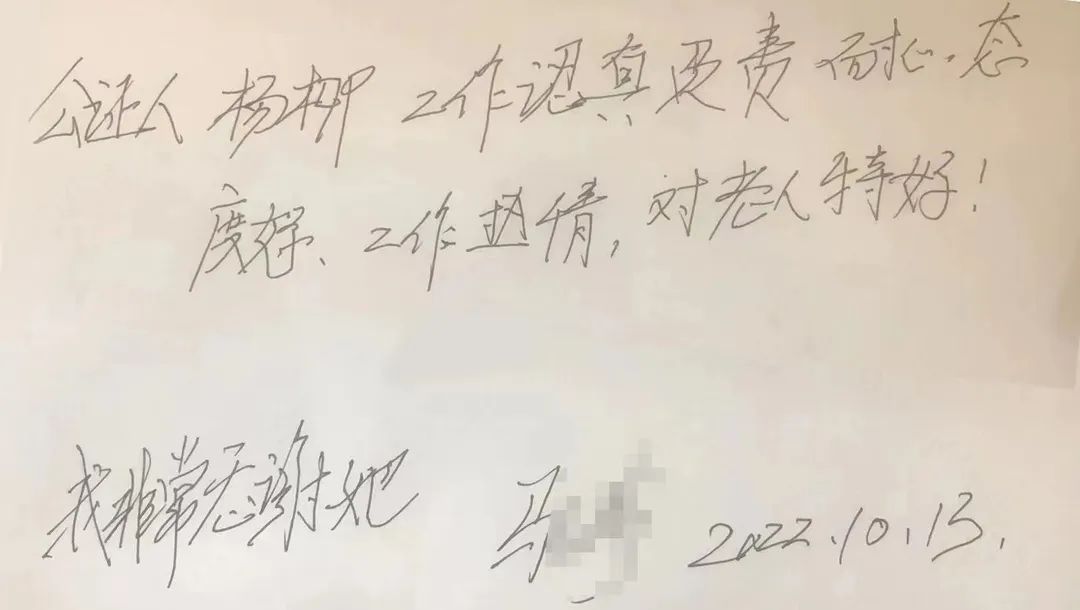 公证人 杨柳 工作認真负责 耐心.态
度好、工作热情,对老人特好!
我非常感谢她 马 2022.10.13.